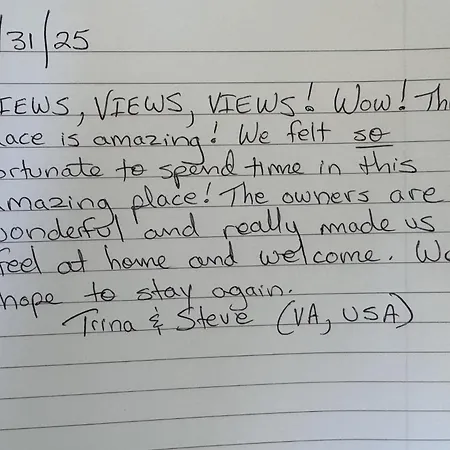 /31/25
IEWS, VIEWS, VIEWS! Wow! Th
lace is amazing! We felt so
ortunate to spend time in this
mazing place! The owners are
wonderful and really made us
feel at home and welcome. W
hope to stay again.
Trina & Steve (VA, USA)